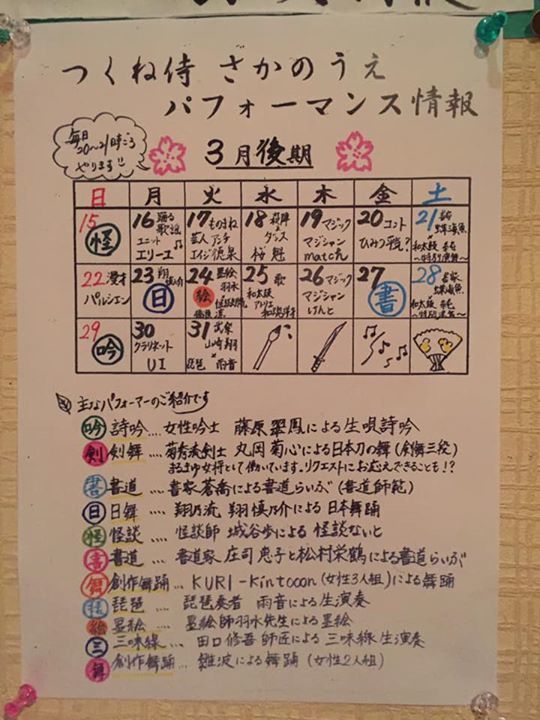 つくね侍 さかのうえ
パフォーマンス情報
毎日
20〜21時ごろ
やります!!
3月後期
日 月 火 水 木 金 土
15 怪
16 踊る 歌謡 ユニット エリーユ
17 ものまね 芸人 アンチ エイジ徳泉
18 殺陣 & ダンス 桜魁
19 マジック マジシャン match
20 コント ひみつ
21 書 蝶海魚 和太鼓
22 漫才 パルシェン
23 翔 日
24 墨絵 羽水 絵
25 歌 和太鼓
26 マジック マジシャン しげんと
27 書
28 書家 蝶海魚 和太鼓
29 吟
30 クラリネット UI
31 武楽 山崎翔 × 琵琶 雨音
主なパフォーマーのご紹介です
吟 詩吟....女性吟士 藤原翠鳳による生唄詩吟
剣 剣舞....菊秀流剣士 丸岡菊心による日本刀の舞(剣舞三段)
まるまゆ女将として働いています。リクエストにお応えできることも!?
書 書道....書家蒼喬による書道らいぶ(書道師範)
日 日舞....翔乃流 翔慎乃介による日本舞踊
怪 怪談....怪談師 城谷歩による怪談ないと
書 書道....書道家 庄司恵子と松村栄鶴による書道らいぶ
舞 創作舞踊...KURI-Kintoon(女性3人組)による舞踊
琵 琵琶....琵琶奏者 雨音による生演奏
絵 墨絵....墨絵師羽水先生による墨絵
三 三味線...田口修吾師匠による三味線生演奏
舞 創作舞踊...難波による舞踊(女性2人組)